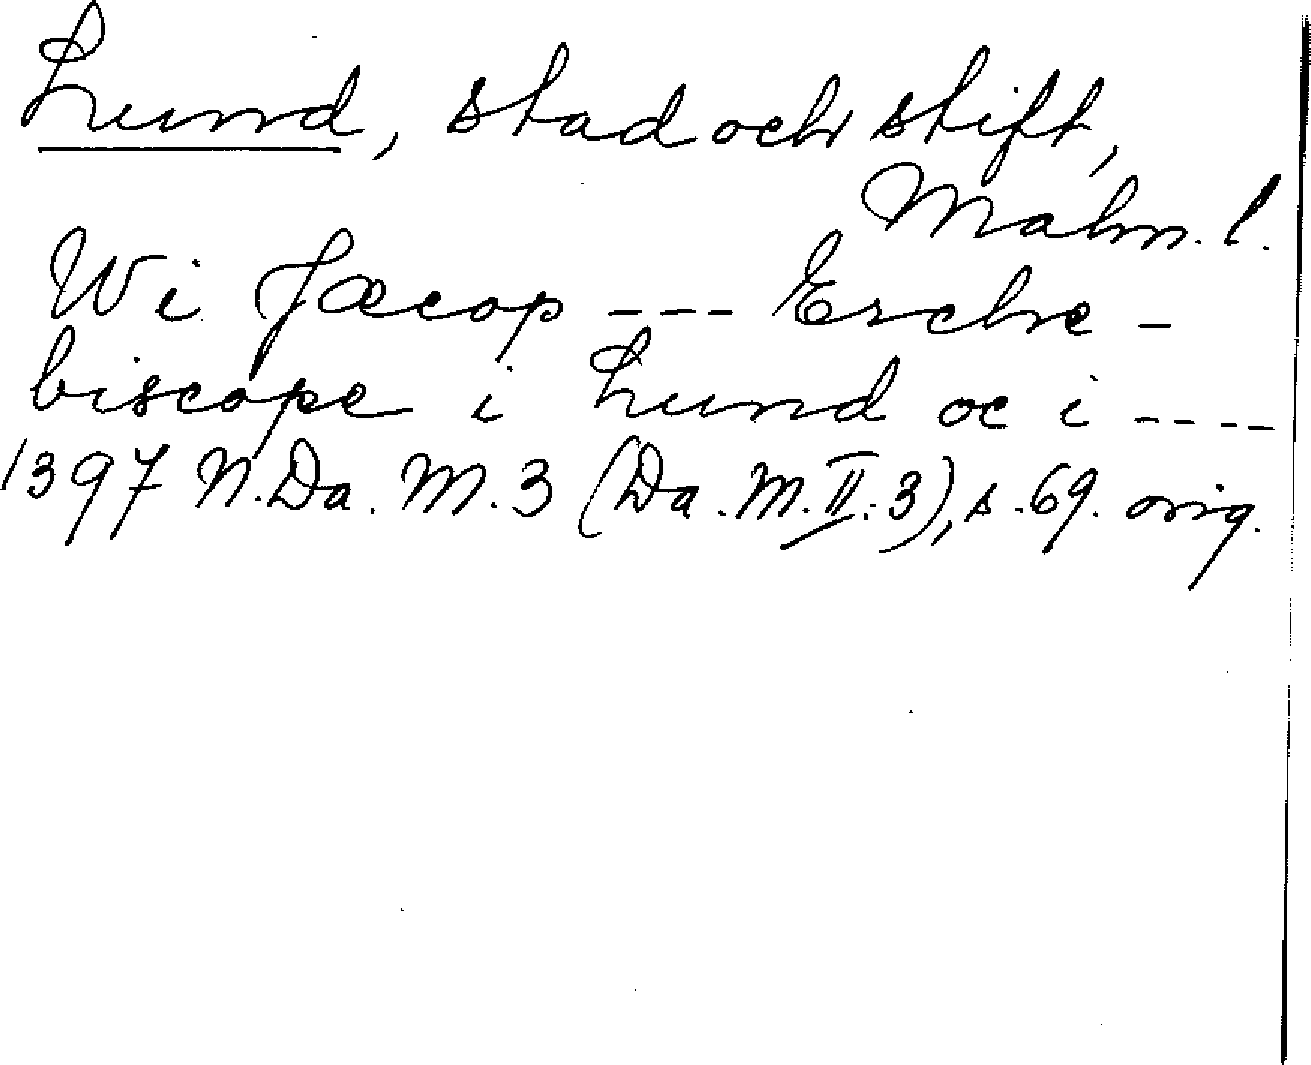 Lund, stad och stift,
Malm. l.
Wi Jæcop --- Erche-
biscope i Lund oc i ----
1397 N. Da. M. 3 (Da. M. II. 3), s. 69. orig.